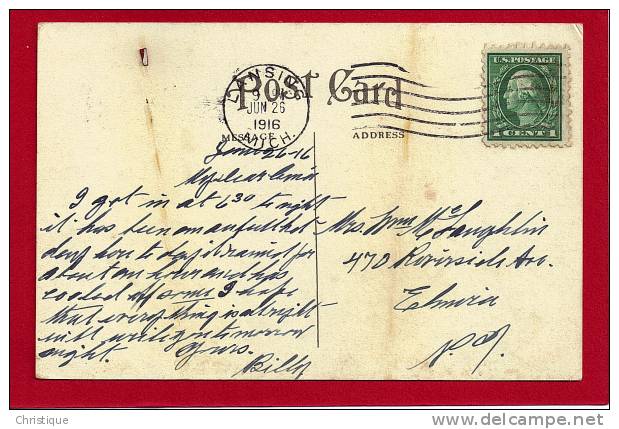 LANSING
9 PM
JUN 26
1916
MICH.
Post Card
MESSAGE
ADDRESS
U.S. POSTAGE
1 CENT 1
June 26-16
My dear
I got in at 6 30 to night
it has been an awful hot
day here to day it rained for
about an hour and has
cooled off some I hope
that everything is alright
will write you tomorrow
night. Yours.
Billy
Mrs. Wm McLaughlin
470 Riverside Av.
Elmira
N.Y.
Christique
www.delcampe.net